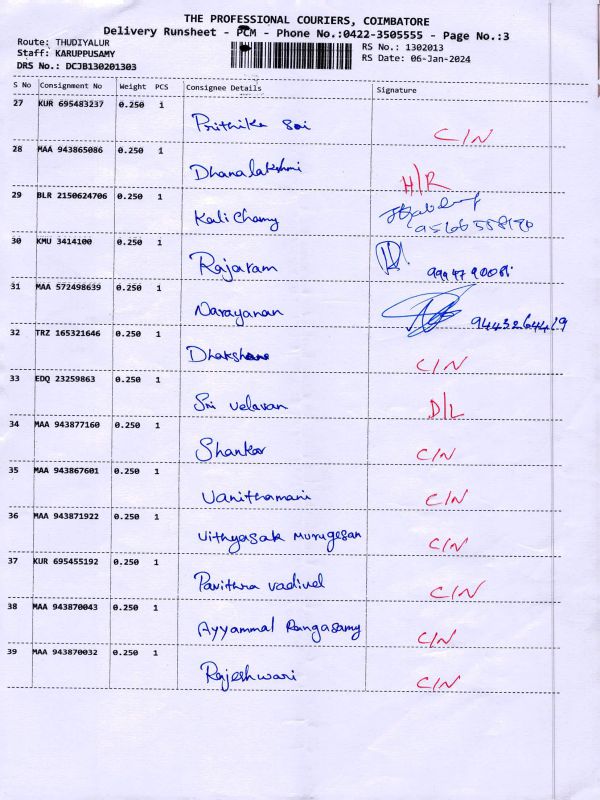 THE PROFESSIONAL COURIERS, COIMBATORE
Delivery Runsheet - PCM - Phone No.:0422-3505555 - Page No.:3
Route: THUDIYALUR
Staff: KARUPPUSAMY
DRS No.: DCJB130201303
RS No.: 1302013
RS Date: 06-Jan-2024
S No Consignment No Weight PCS Consignee Details Signature
27 KUR 695483237 0.250 1 Prithika Sai C/N
28 MAA 943865086 0.250 1 Dhanalakshmi H/R
29 BLR 2150624706 0.250 1 Kalichamy
30 KMU 3414100 0.250 1 Rajaram
31 MAA 572498639 0.250 1 Narayanan 9443264419
32 TRZ 165321646 0.250 1 C/N
33 EDQ 23259863 0.250 1 Sri velavan D/L
34 MAA 943877160 0.250 1 Shankar C/N
35 MAA 943867601 0.250 1 Vanithamani C/N
36 MAA 943871922 0.250 1 Vithyasak Murugesan C/N
37 KUR 695455192 0.250 1 Pavithra Vadivel C/N
38 MAA 943870043 0.250 1 Ayyammal Rangasamy C/N
39 MAA 943870032 0.250 1 Rajeshwari C/N